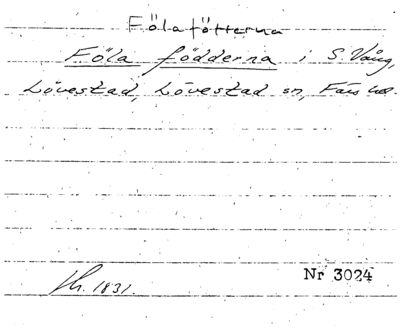 Fölafötterna
Föla födderna i S. Vång,
Lövestad, Lövestad sn, Färs hd.
Nr 3024
1831.